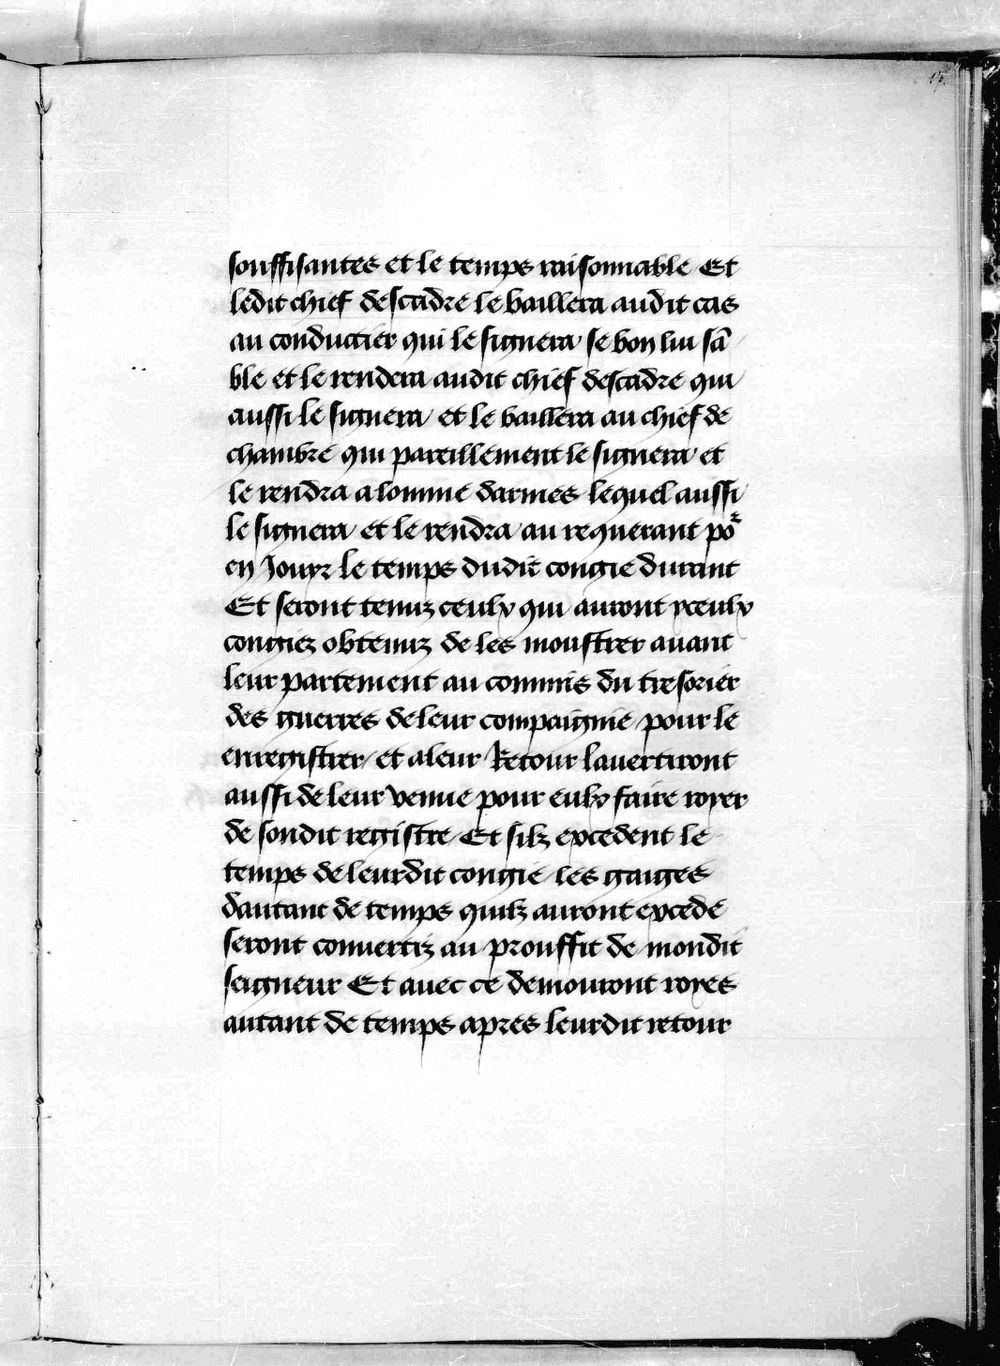 souffisantes et le temps raisonnable Et
ledit chief descadre le baillera audit cas
au conductier qui le signera se bon lui sā
ble et le rendera audit chief descadre qui
aussi le signera et le baillera au chief de
chambre qui pareillement le signera et
le rendra a lomme darmes lequel aussi
le signera et le rendra au requerant poʳ
en Jouyr le temps dudit congie durant
Et seront tenuz ceulx qui auront yceulx
congiez obtenuz de les moustrer auant
leur partement au commis du tresorier
des guerres de leur compaignie pour le
enregistrer et a leur Retour lauertiront
aussi de leur venue pour eulx faire royer
de sondit registre Et silz excedent le
temps de leurdit congie les gaiges
dautant de temps quilz auront excede
seront conuertiz au prouffit de mondit
seigneur Et auec ce demouront royes
autant de temps apres leurdit retour